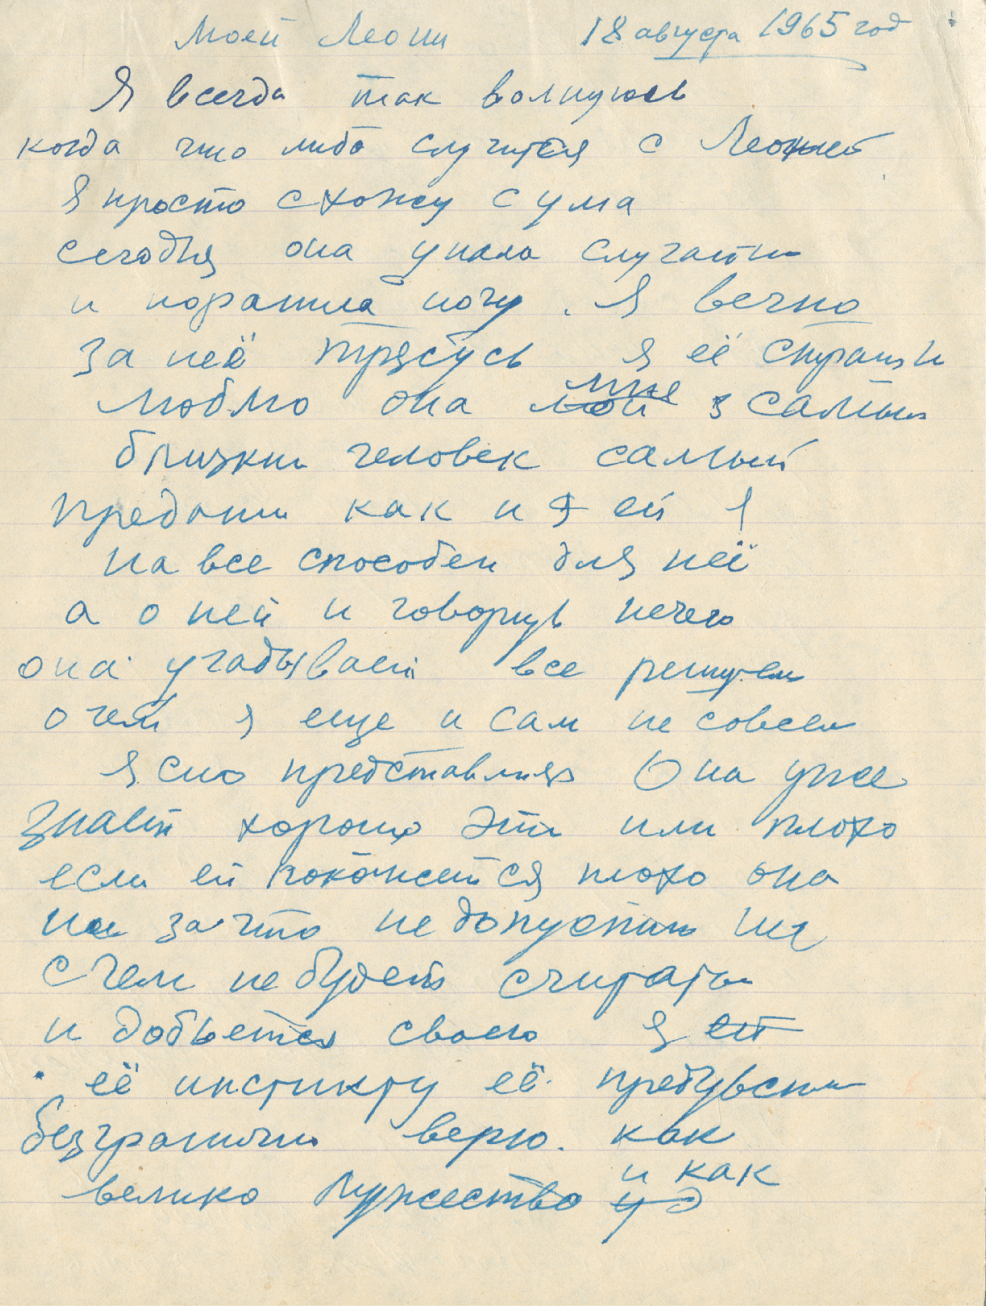 Моей Леони 18 августа 1965 год
Я всегда так волнуюсь
когда что либо случится с Леоней
Я просто схожу с ума
сегодня она упала случайно
и поранила ногу. Я вечно
за неё трясусь я её страшно
люблю она мой мне самый
близкий человек самый
преданый как и я ей Я
на все способен для неё
а о ней и говорить нечего
она угадывает все решительно
о чем я еще и сам не совсем
ясно представляю Она уже
знает хорошо это или плохо
если ей покажется плохо она
ни за что не допустит ни
с чем не будет считаться
и добьется своего я ей
её инстинкту её предчувствию
безгранично верю. как
и как
велико мужество